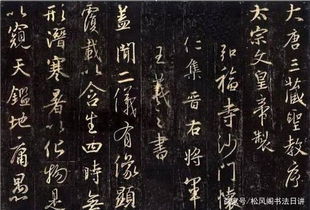 大唐三藏聖教序
太宗文皇帝製
弘福寺沙門懷
仁集晉右將軍
王羲之書
蓋聞二儀有像顯
覆載以含生四時無
形潛寒暑以化物是
以窺天鑑地庸愚
搜狐号@松风阁书法日讲